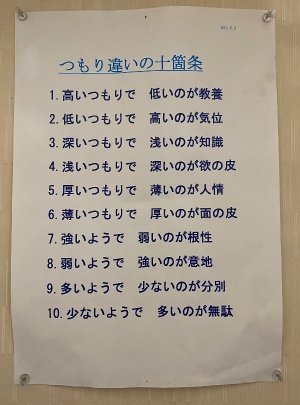 つもり違いの十箇条
1.高いつもりで　低いのが教養
2.低いつもりで　高いのが気位
3.深いつもりで　浅いのが知識
4.浅いつもりで　深いのが欲の皮
5.厚いつもりで　薄いのが人情
6.薄いつもりで　厚いのが面の皮
7.強いようで　弱いのが根性
8.弱いようで　強いのが意地
9.多いようで　少ないのが分別
10.少ないようで　多いのが無駄